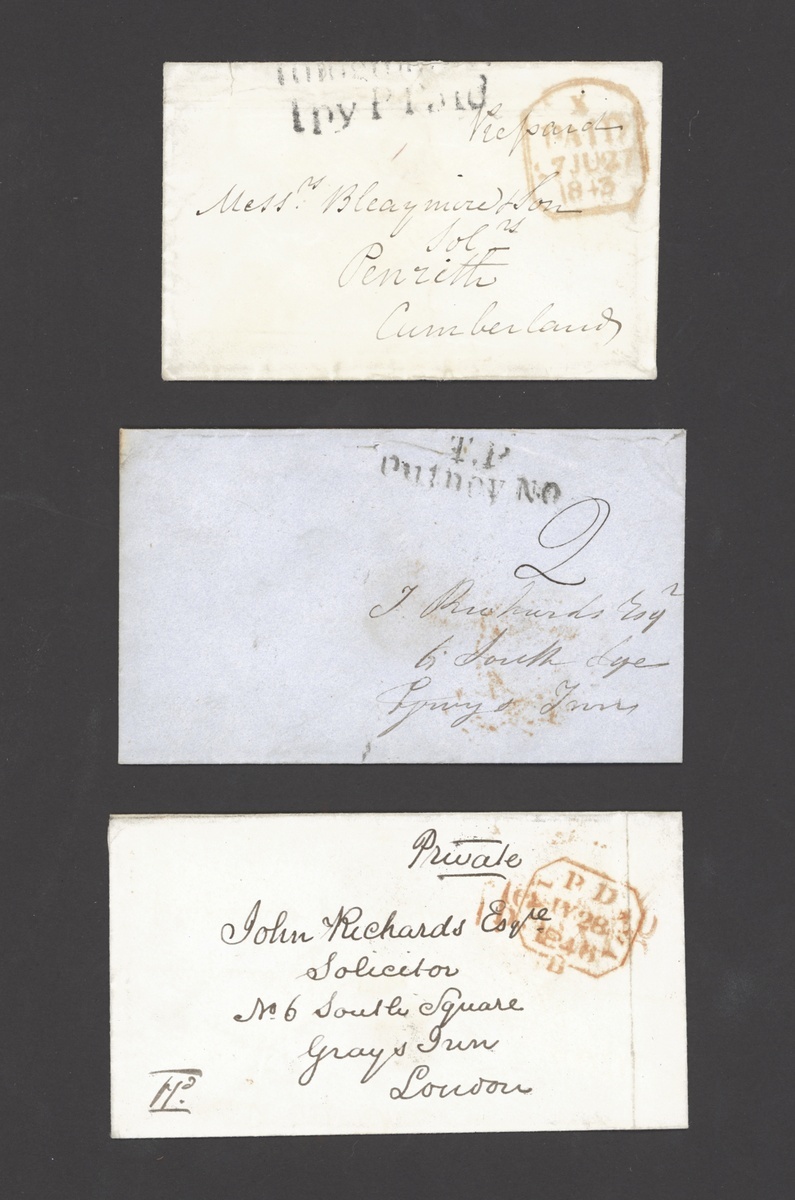 1py P Paid
Prepaid
X
PAID
27 JU 27
1843
Messrs. Bleaymire & Son
Solrs
Penrith
Cumberland
T.P
Putney N.O
2
J Richards Esqr
6 South Sqe
Grays Inn
Private
P D
JY 28
1846
B
John Richards Esqre
Solicitor
No 6 South Square
Grays Inn
London